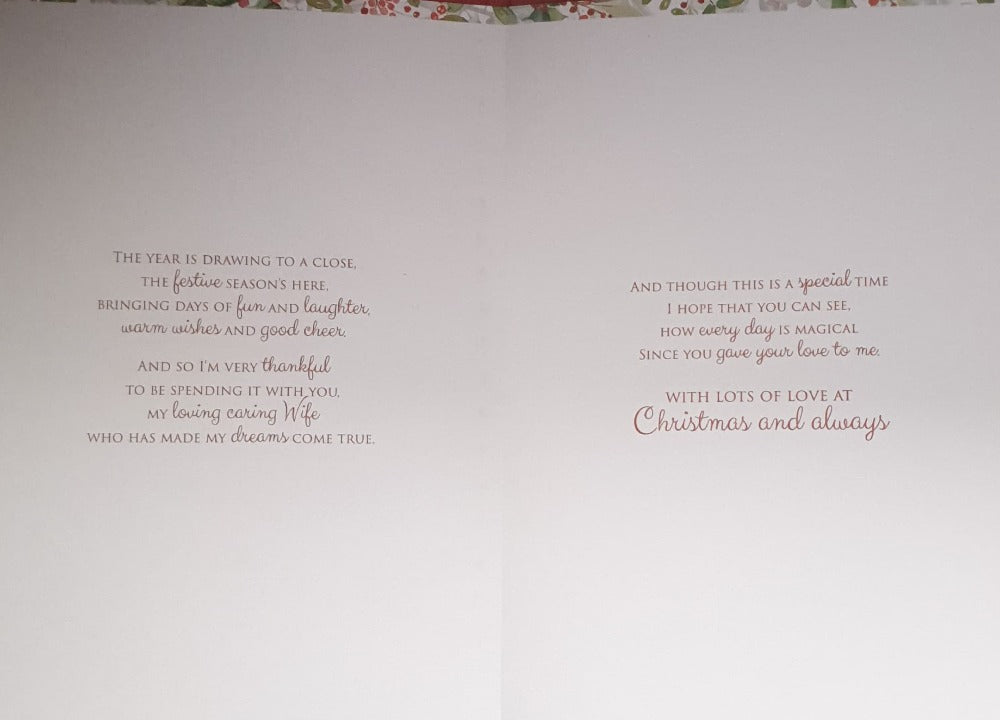 THE YEAR IS DRAWING TO A CLOSE,
THE festive SEASON'S HERE,
BRINGING DAYS OF fun AND laughter,
warm wishes AND good cheer.
AND SO I'M VERY thankful
TO BE SPENDING IT WITH YOU,
MY loving caring Wife
WHO HAS MADE MY dreams COME TRUE.
AND THOUGH THIS IS A special TIME
I HOPE THAT YOU CAN SEE,
HOW every day IS MAGICAL
SINCE YOU gave your love to me.
WITH LOTS OF LOVE AT
Christmas and always